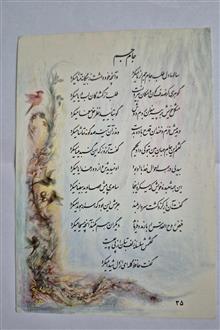 جام جم
سالها دل طلب جام جم از ما میکرد وآنچه خود داشت ز بیگانه تمنا میکرد
گوهری کز صدف کون و مکان بیرونست طلب از گمشدگان لب دریا میکرد
مشکل خویش بر پیر مغان بردم دوش کو بتایید نظر حل معما میکرد
دیدمش خرم و خندان قدح باده بدست وندر آن آینه صد گونه تماشا میکرد
گفتم این جام جهان بین بتو کی داد حکیم گفت آنروز که این گنبد مینا میکرد
بیدلی در همه احوال خدا با او بود او نمیدیدش و از دور خدایا میکرد
این همه شعبده خویش که میکرد اینجا سامری پیش عصا و ید بیضا میکرد
گفت آن یار کزو گشت سر دار بلند جرمش این بود که اسرار هویدا میکرد
فیض روح القدس ار باز مدد فرماید دیگران هم بکنند آنچه مسیحا میکرد
گفتمش سلسله زلف بتان از پی چیست
گفت حافظ گله‌ای از دل شیدا میکرد
۳۵